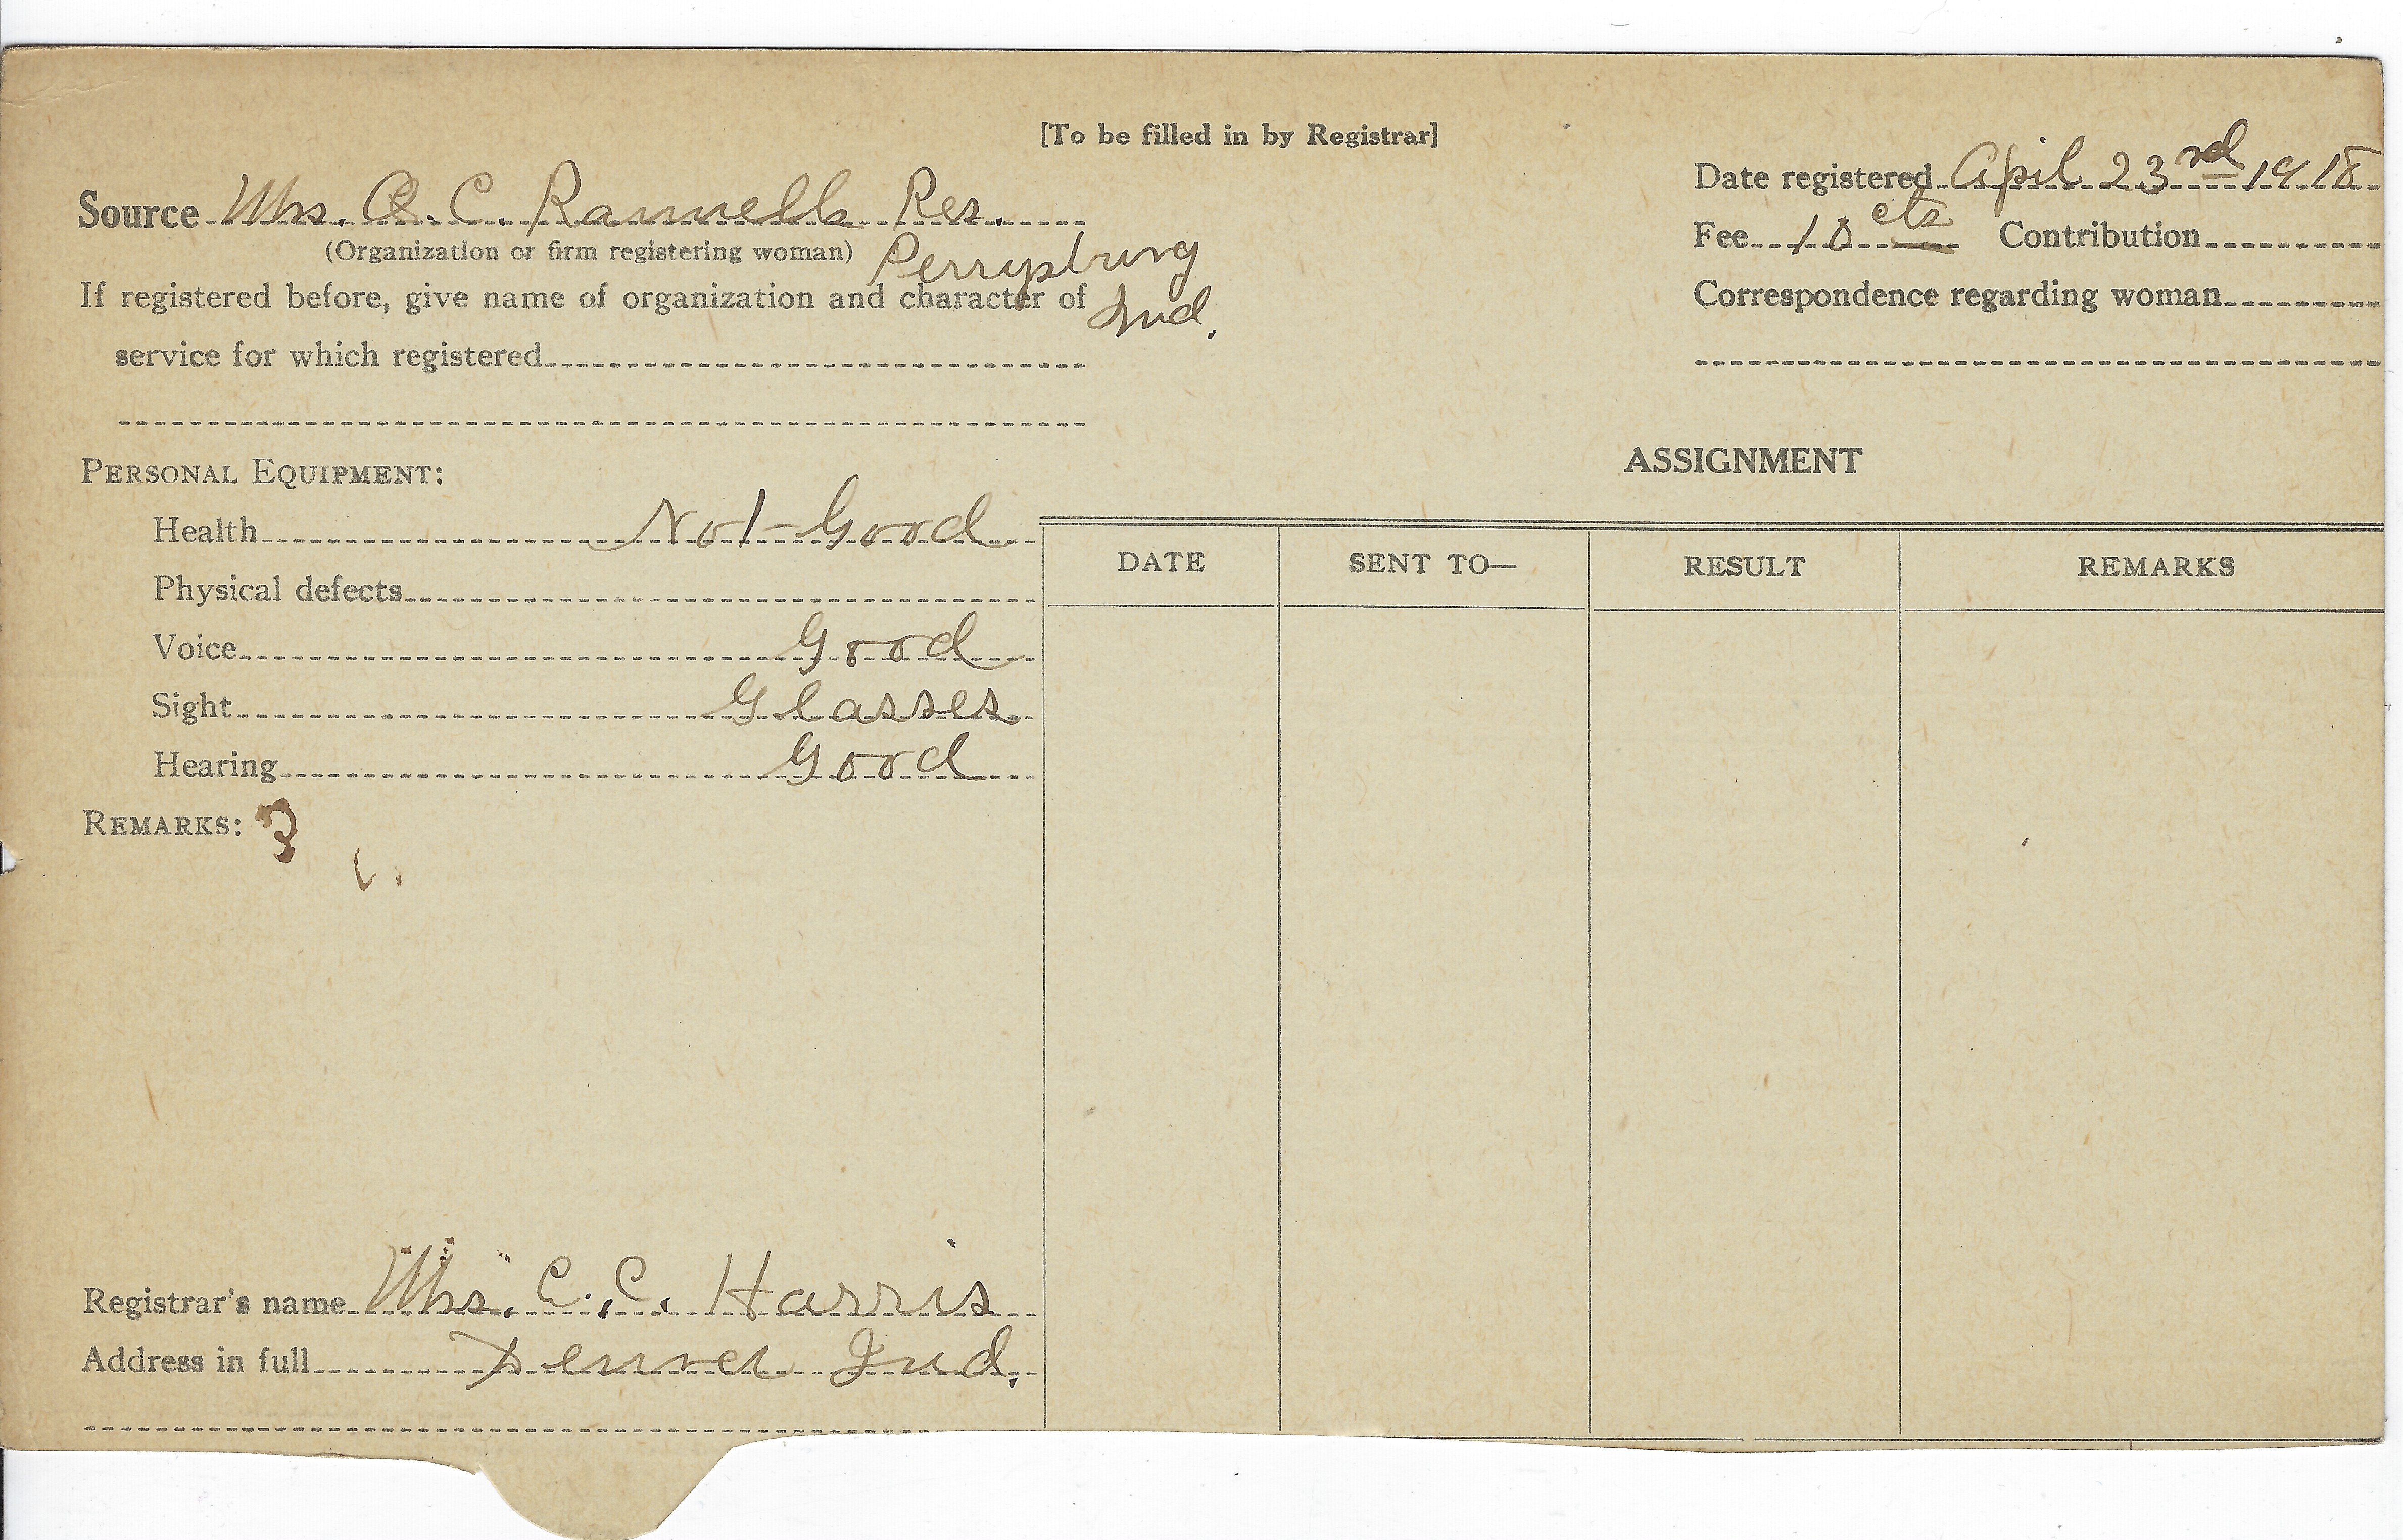 [To be filled in by Registrar]
Date registered April 23rd 1918
Source Mrs. C. Rannells Res.
(Organization or firm registering woman) Perrysburg
Fee 10 cts Contribution
If registered before, give name of organization and character of Ind.
Correspondence regarding woman
service for which registered
PERSONAL EQUIPMENT:
ASSIGNMENT
Health Not Good
DATE SENT TO— RESULT REMARKS
Physical defects
Voice Good
Sight Glasses
Hearing Good
REMARKS:
Registrar's name Mrs. C. C. Harris
Address in full Denver Ind.